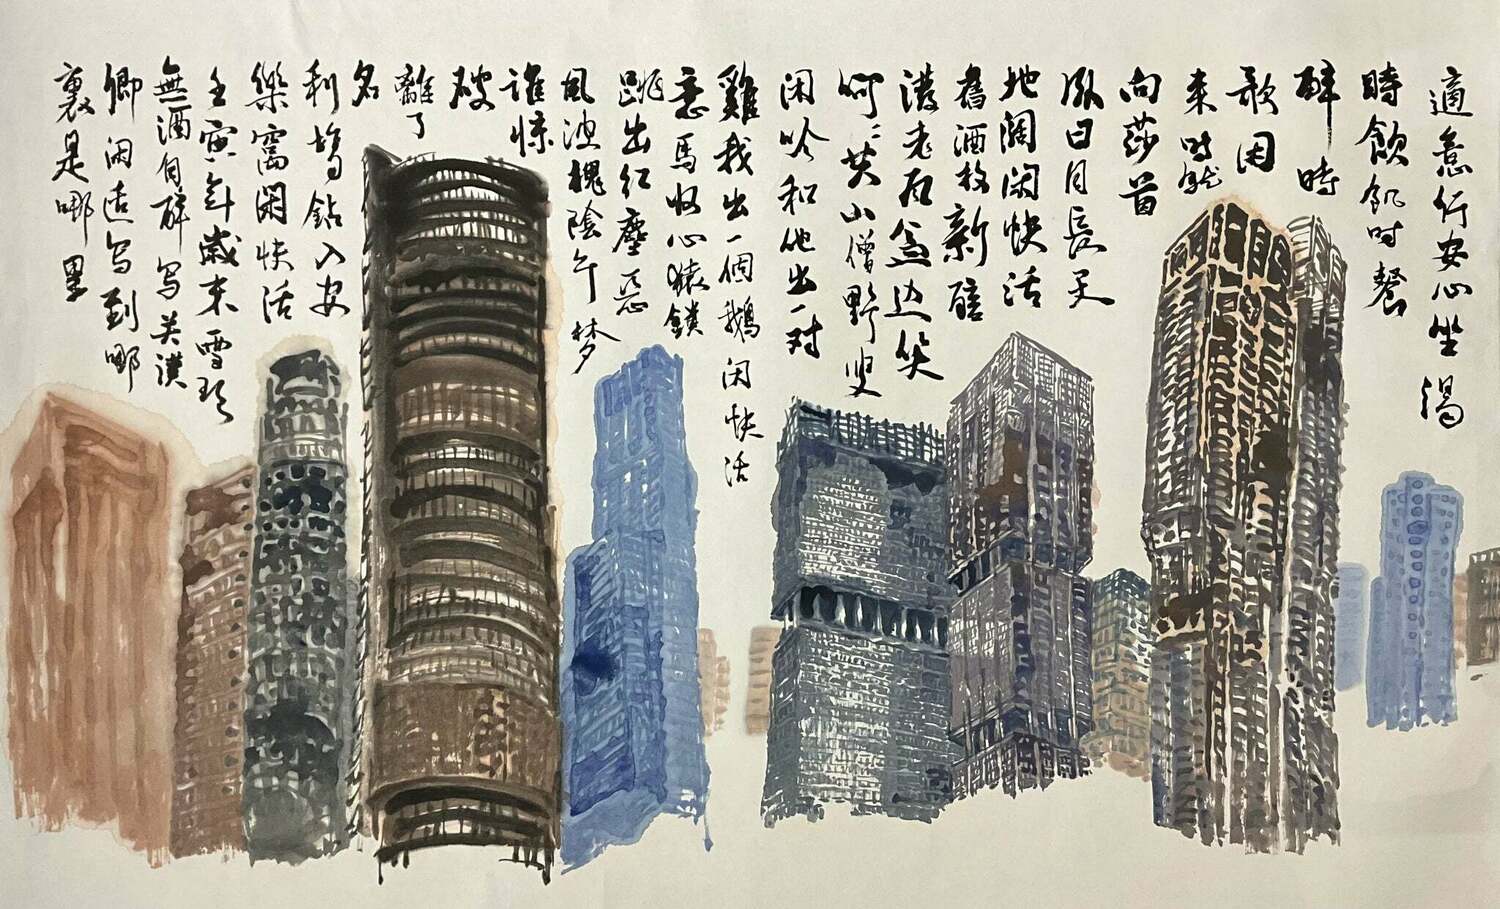 適意行安心坐渴
時飲飢时餐
醉時
歌困
来时就
向莎茵
臥日月長天
地阔闲快活
舊酒投新醅
潑老瓦盆边笑
呵呵共山僧野叟
闲吟和他出一对
雞我出一個鵝闲快活
意馬收心猿鎖
跳出红塵恶
風波槐陰午梦
谁惊
破
離了
名
利場钻入安
樂窩閑快活
壬寅年歲末雪
無酒自醉写关漢
卿闲适写到哪
裏是哪里